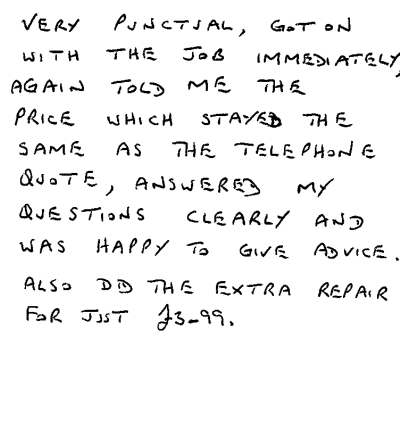 VERY PUNCTUAL, GOT ON
WITH THE JOB IMMEDIATELY,
AGAIN TOLD ME THE
PRICE WHICH STAYED THE
SAME AS THE TELEPHONE
QUOTE, ANSWERED MY
QUESTIONS CLEARLY AND
WAS HAPPY TO GIVE ADVICE.
ALSO DID THE EXTRA REPAIR
FOR JUST £3-99.